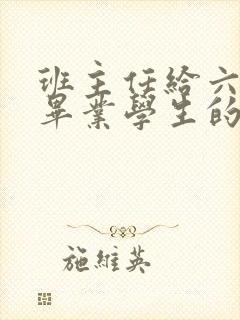 班主任給六
畢業學生的
施維英